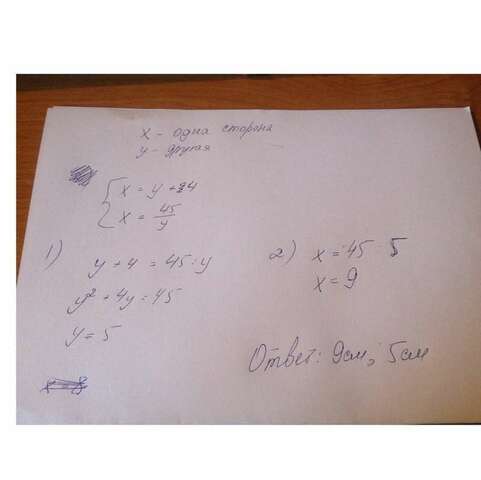 x - одна сторона
y - другая
{ x = y + 4
x = 45/y
1) y + 4 = 45 : y
y² + 4y = 45
y = 5
2) x = 45 : 5
x = 9
Ответ: 9см, 5см